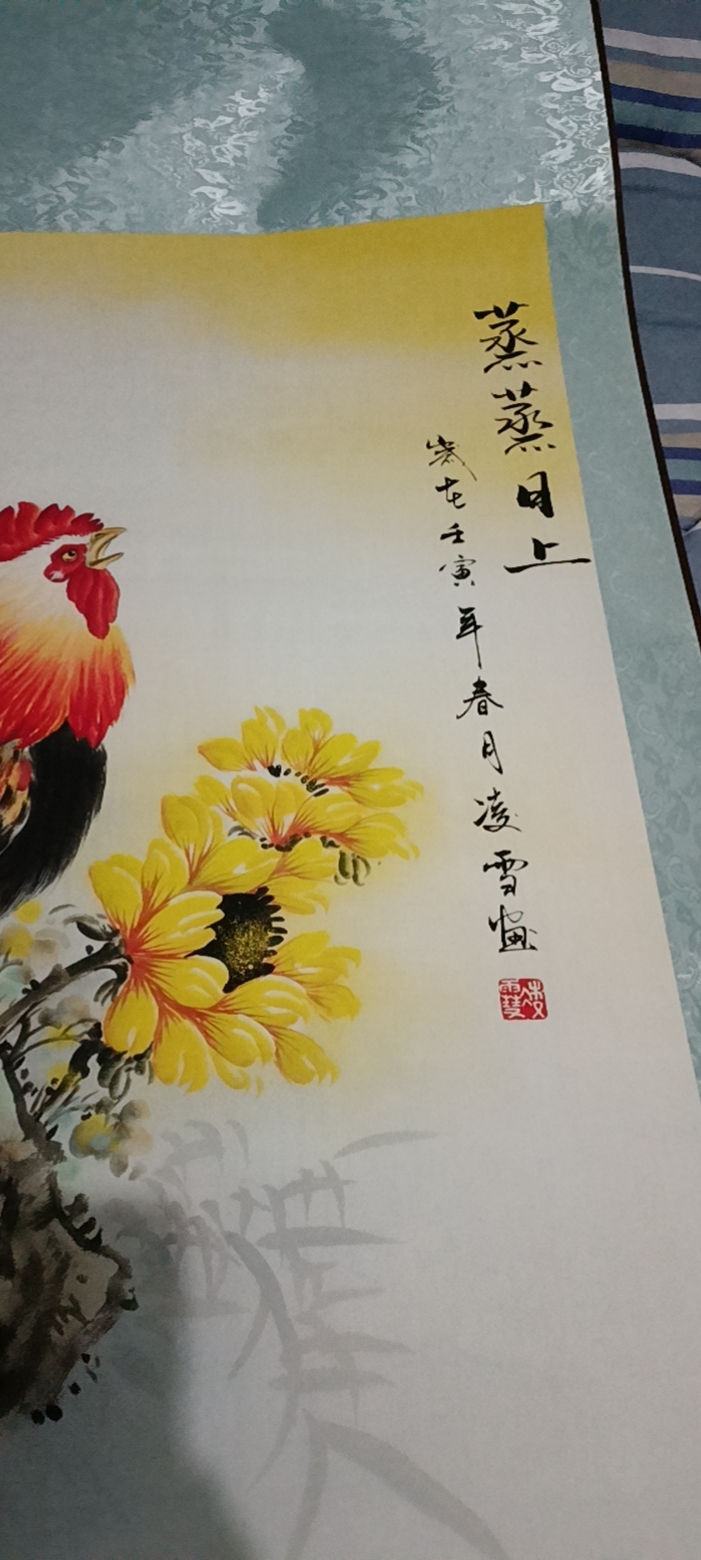 蒸蒸日上
歲在壬寅年春月凌雪畫